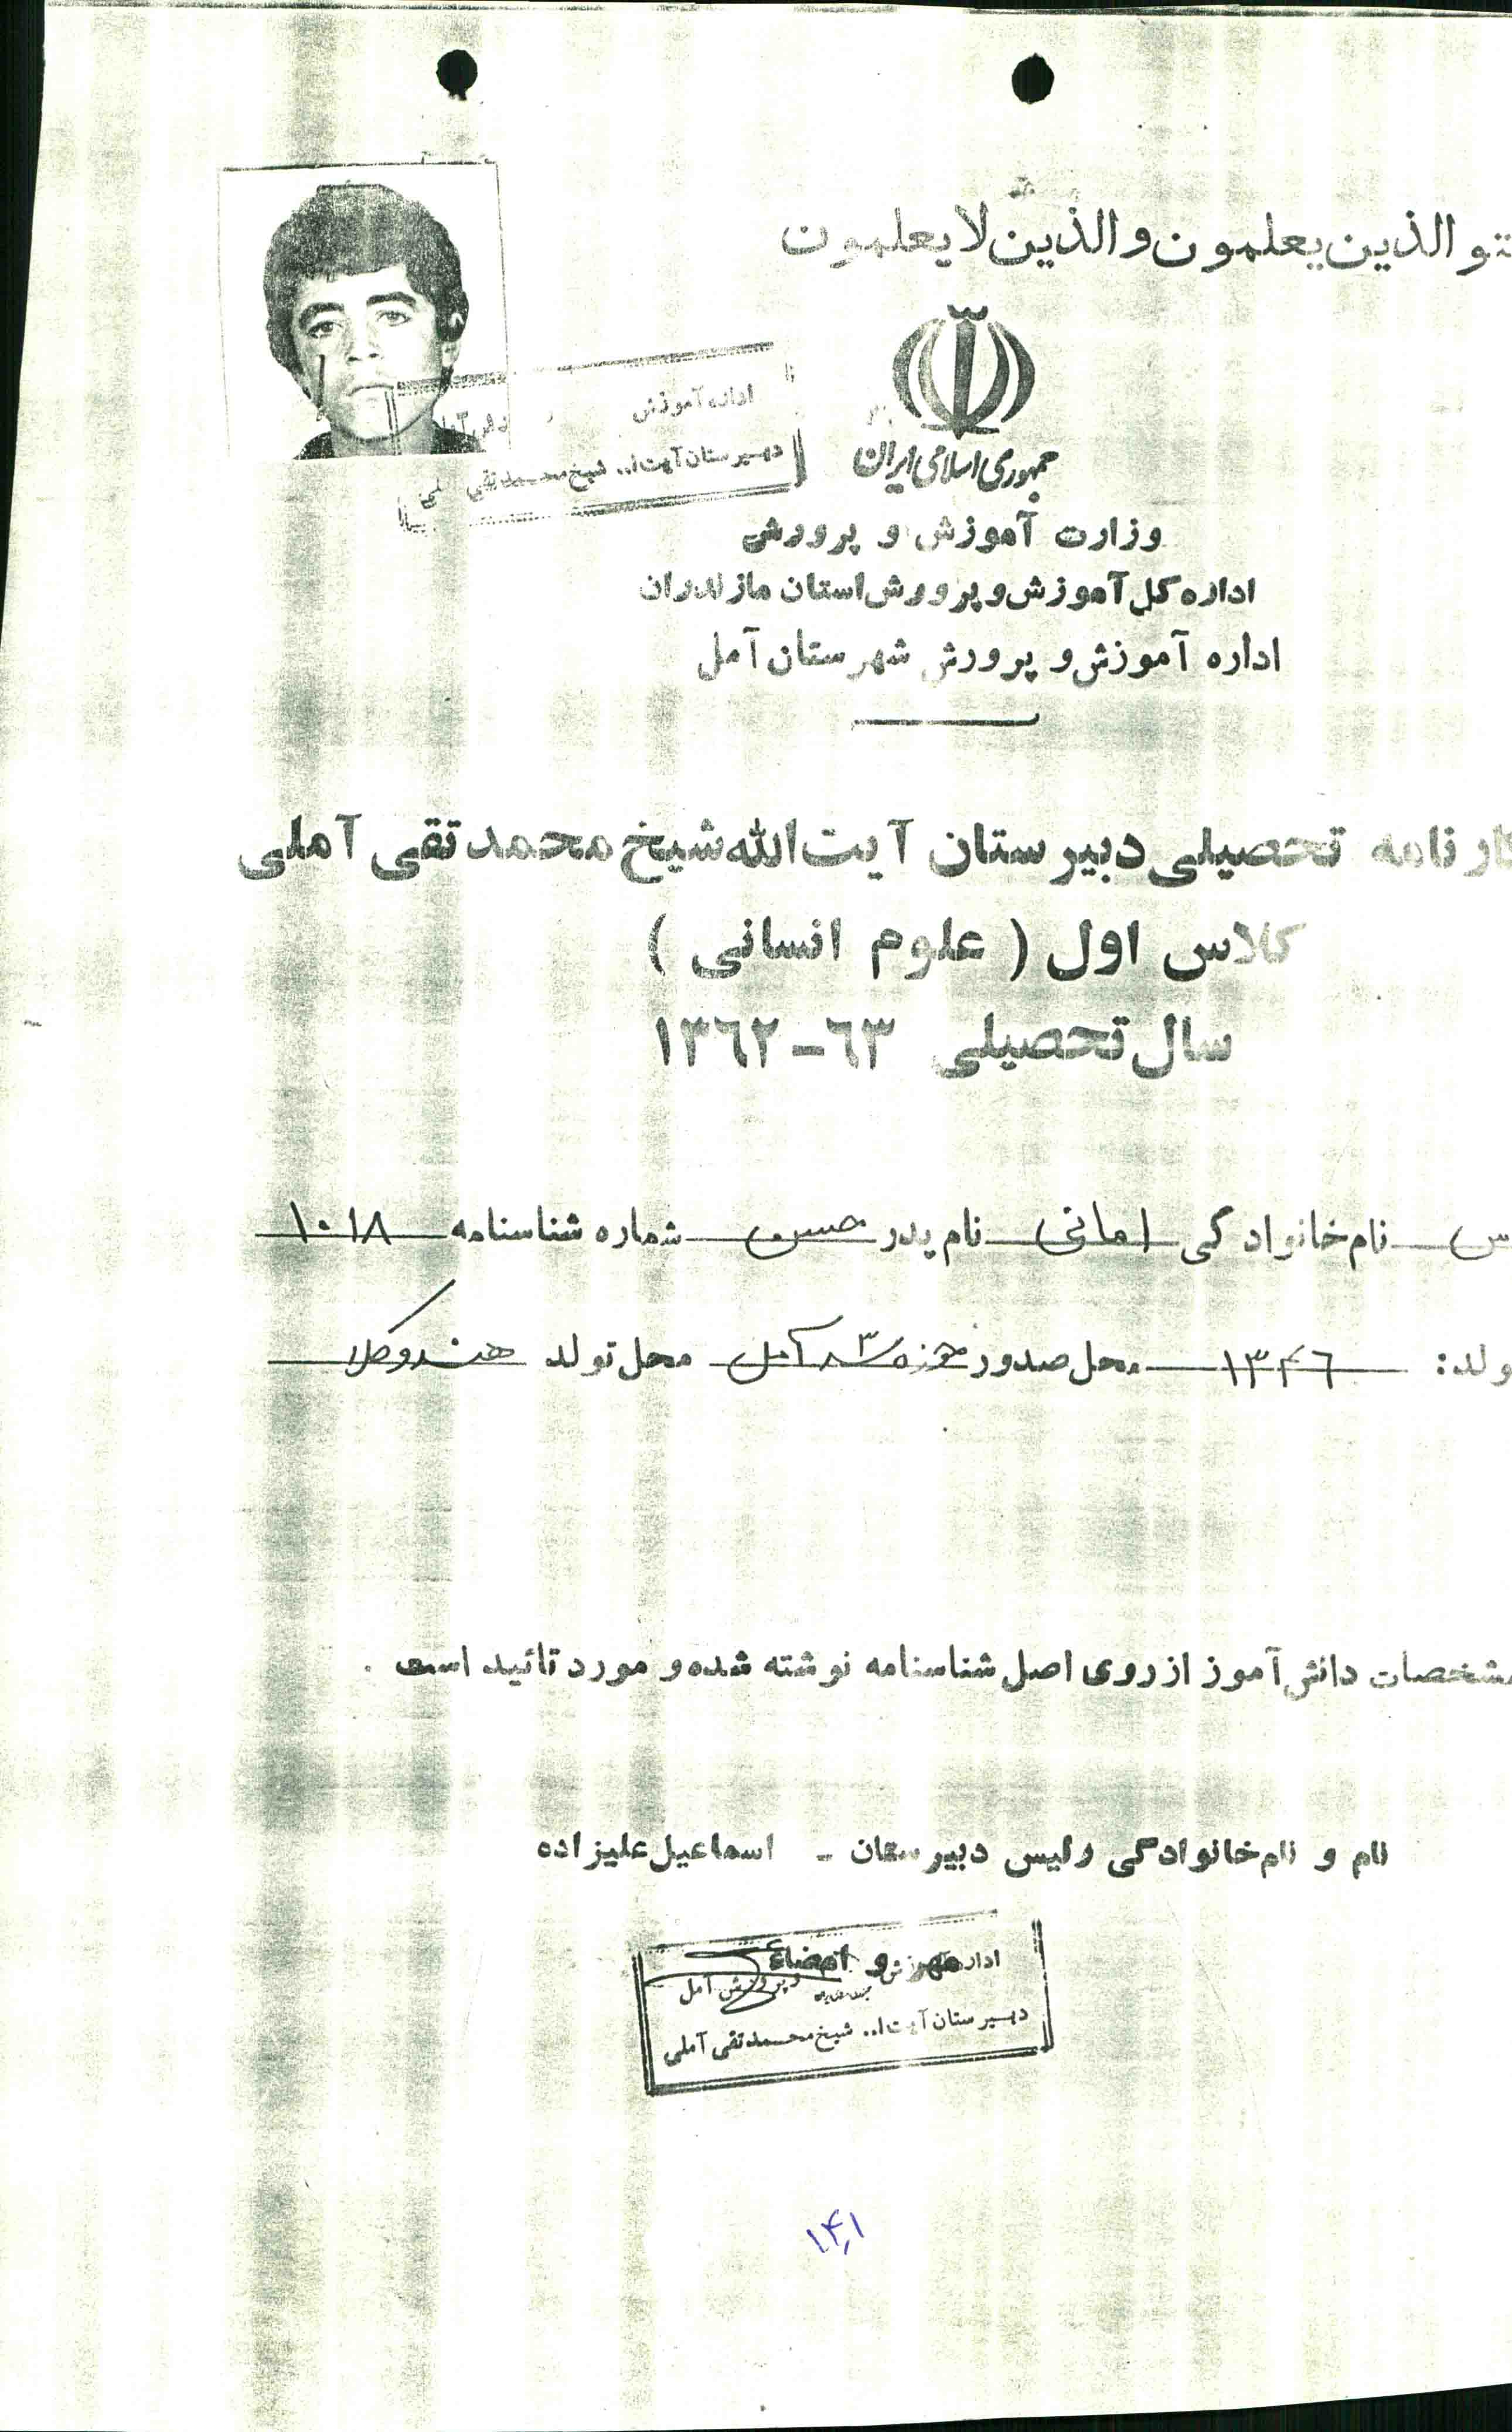 والذین یعلمون والذین لا یعلمون
جمهوری اسلامی ایران
اداره آموزش
دبیرستان آیت ا.. شیخ محمد تقی
وزارت آموزش و پرورش
اداره کل آموزش و پرورش استان مازندران
اداره آموزش و پرورش شهرستان آمل
کارنامه تحصیلی دبیرستان آیت الله شیخ محمد تقی آملی
کلاس اول ( علوم انسانی )
سال تحصیلی ٦٣-١٣٦٢
نام خانوادگی امانی نام پدر حسین شماره شناسنامه ۱۰۱۸
ولد: ۱۳۴۶ محل صدور حوزه ۳ آمل محل تولد هندوکلا
مشخصات دانش آموز از روی اصل شناسنامه نوشته شده و مورد تائید است .
نام و نام خانوادگی رئیس دبیرستان - اسماعیل علیزاده
مهر و امضاء
اداره آموزش و پرورش آمل
دبیرستان آیت ا.. شیخ محمد تقی آملی
۱۴۱